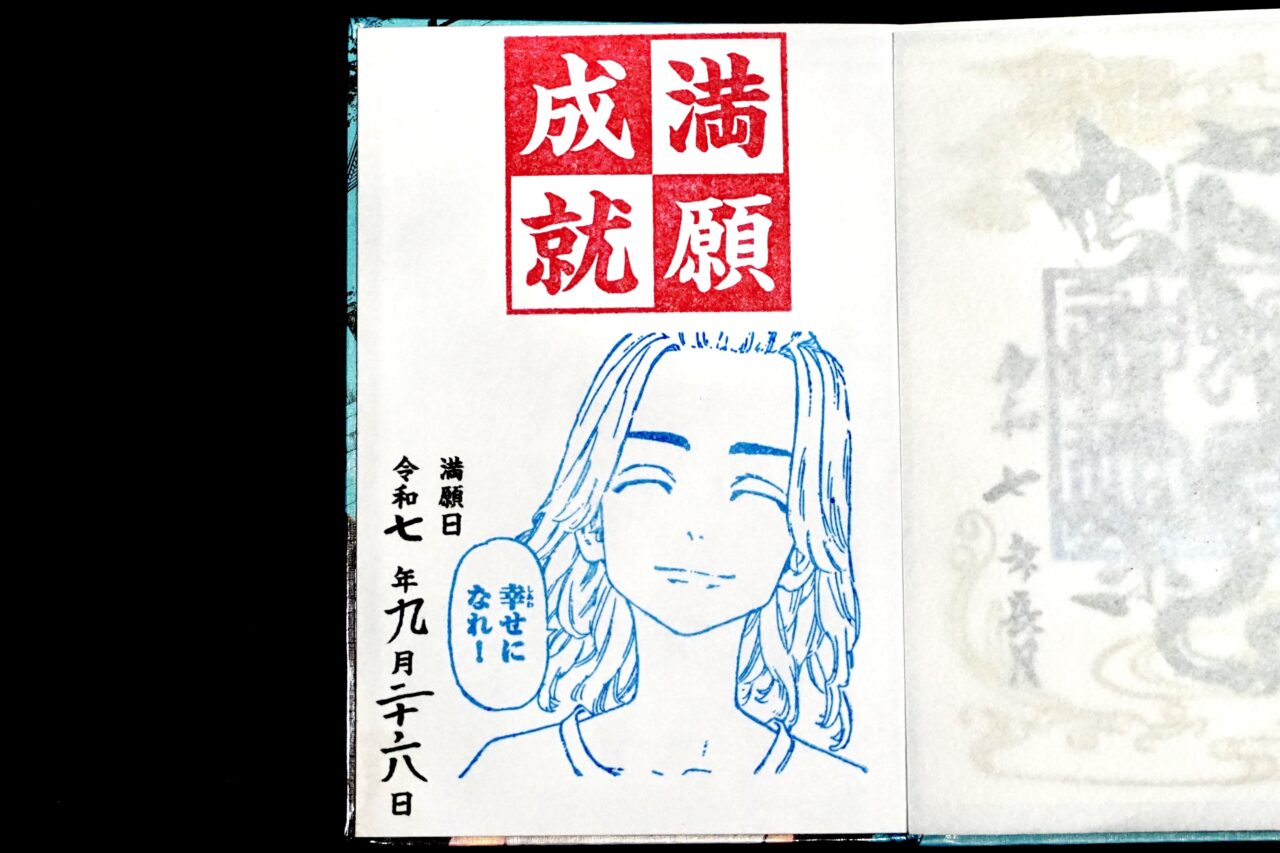 満願
成就
満願日
令和七年九月二十六日
幸せに
しあわ
なれ！